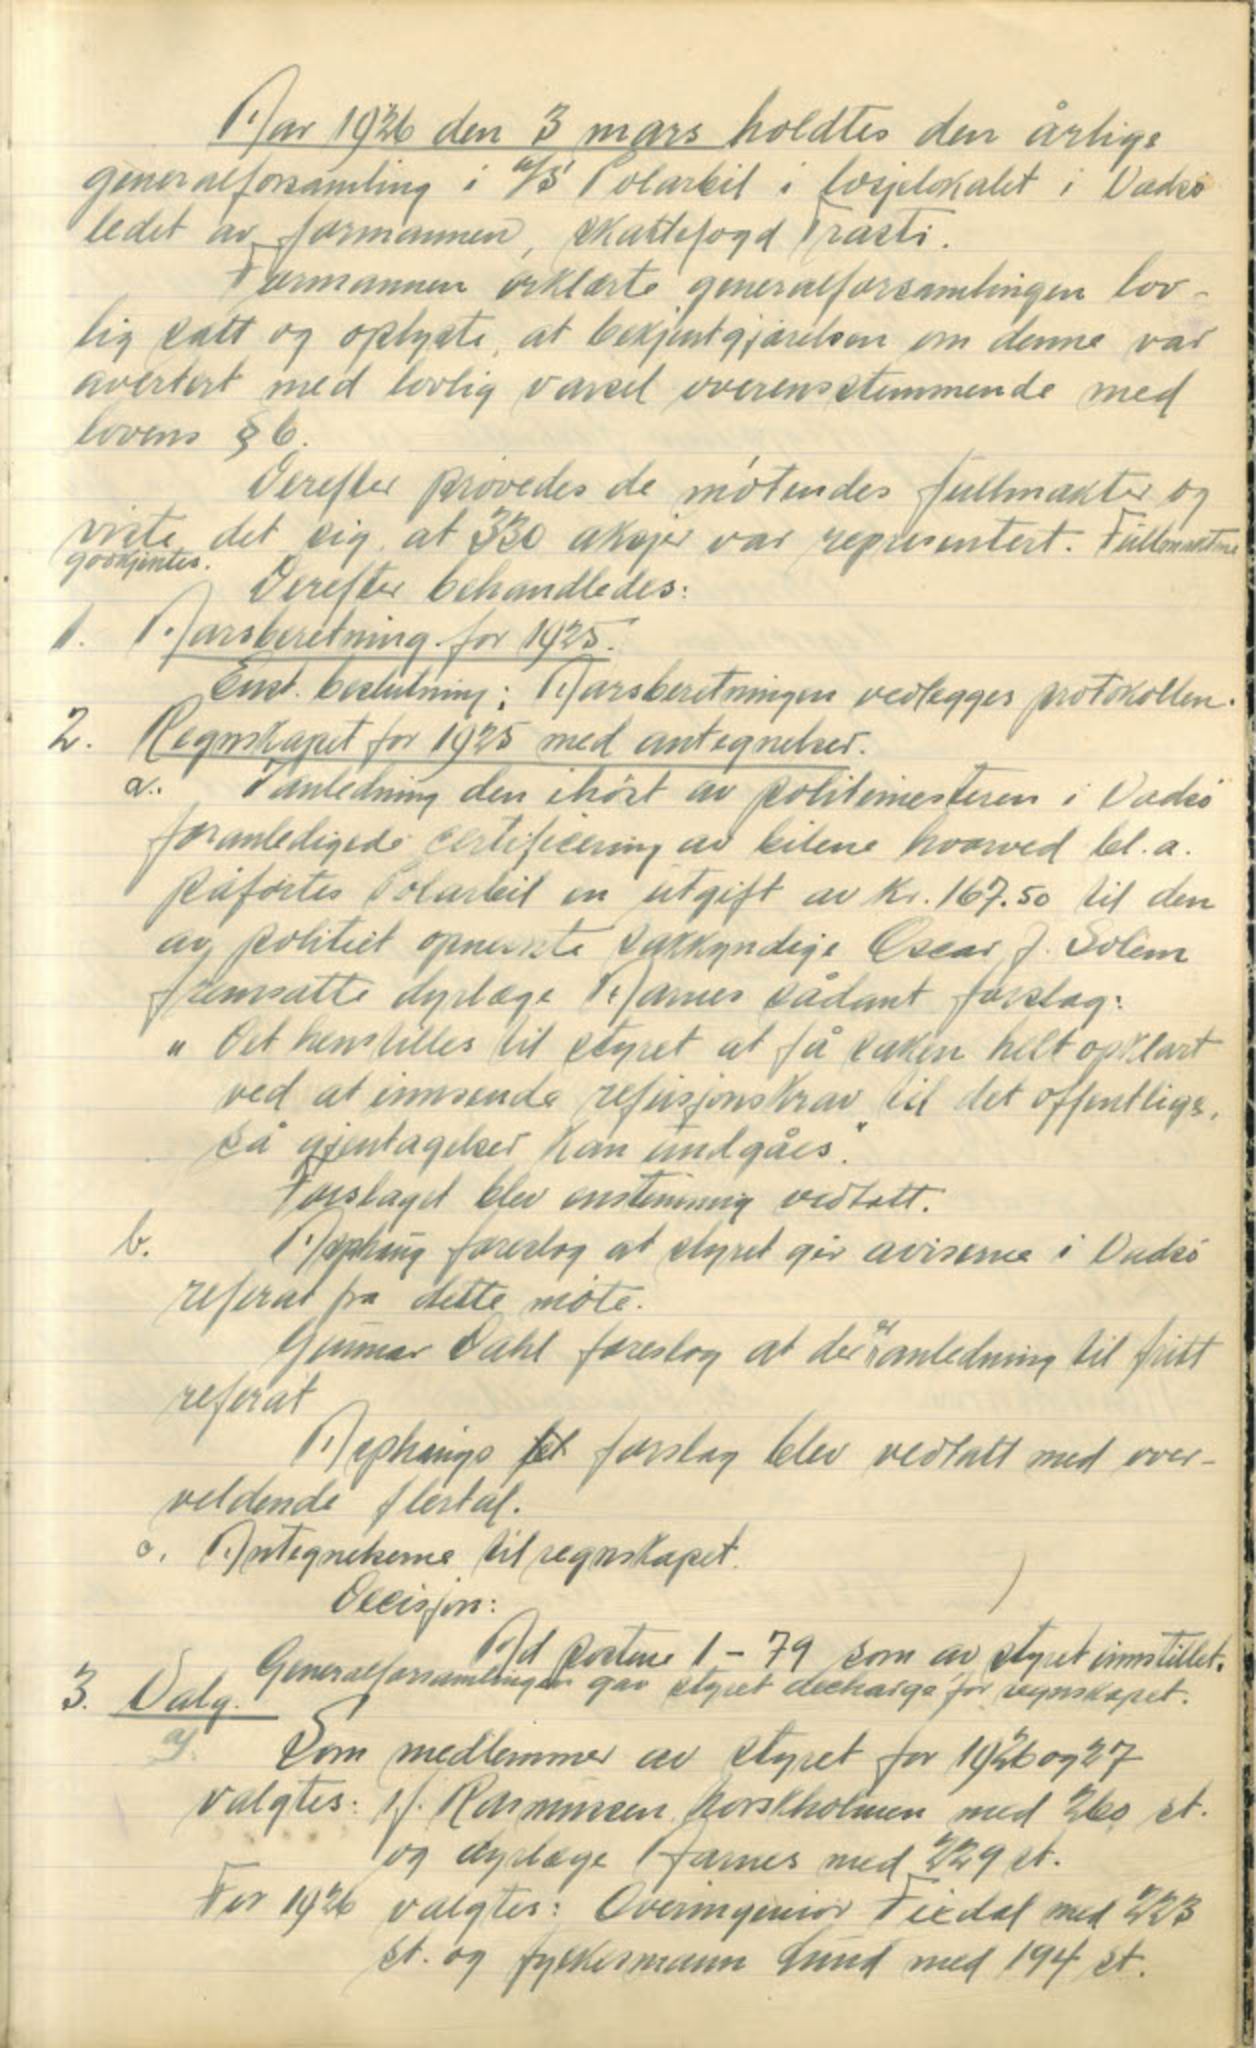 Aar 1926 den 3 mars holdtes den årlige
generalforsamling i A/S Polarbil i losjelokalet i Vadsö
ledet av formannen, skattefogd Trasti.
Formannen erklærte generalforsamlingen lov-
lig satt og oplyste, at bekjentgjörelsen om denne var
avertert med lovlig varsel overensstemmende med
lovens § 6.
Derefter prövedes de mötendes fullmakter og
viste det sig at 330 aksjer var representert. Fullmaktene
godkjentes.
Derefter behandledes:
1. Aarsberetning for 1925.
Enst. beslutning: Aarsberetningen vedlegges protokollen.
2. Regnskapet for 1925 med antegnelser.
a. I anledning den ihöst av politimesteren i Vadsö
foranledigede certificering av bilene hvorved bl.a.
påförtes Polarbil en utgift av kr. 167.50 til den
av politiet opnevnte sakkyndige Oscar J. Solem
fremsatte dyrlæge Aarnes sådant forslag:
" Det henstilles til styret at få saken helt opklart
ved at innsende refusjonskrav til det offentlige,
så gjentagelser kan undgåes."
Forslaget blev enstemmig vedtatt.
b. foreslog at styret gir aviserne i Vadsö
referat fra dette möte.
Gunnar Dahl foreslog at der er anledning til fritt
referat
forslag blev vedtatt med over-
veldende flertal.
c. Antegnelserne til regnskapet.
Decisjon:
Ad postene 1 - 79 som av styret innstillet.
Generalforsamlingen gav styret decharge for regnskapet.
3. Valg.
a) Som medlemmer av styret for 1926 og 27
valgtes: Rasmussen, med 260 st.
og dyrlæge Aarnes med 229 st.
For 1926 valgtes: Overingeniör med 223
st. og fylkesmann Lund med 194 st.